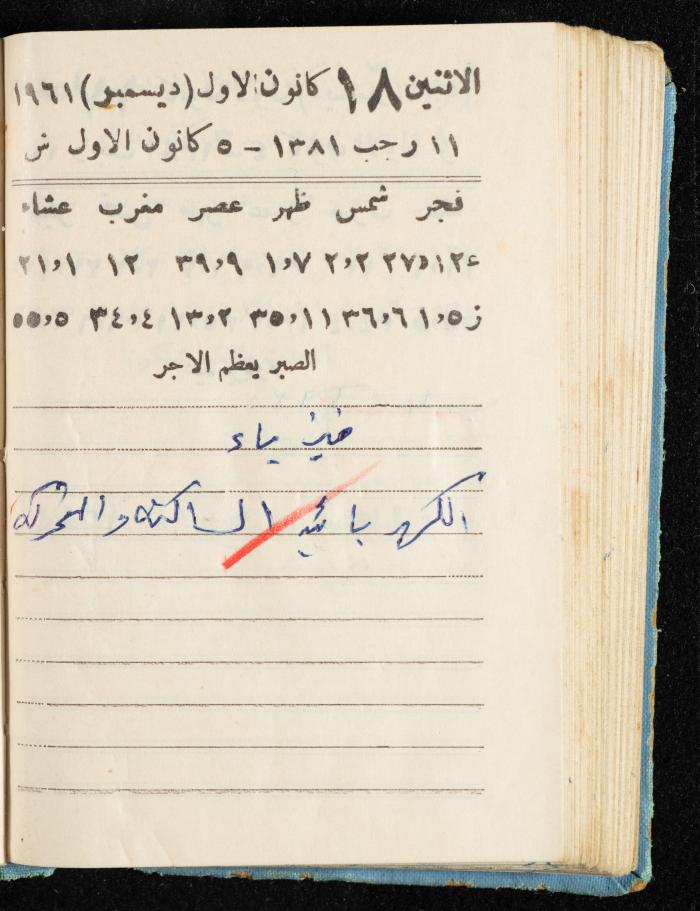 الاثنين ١٨ كانون الاول (ديسمبر) ١٩٦١
١١ رجب ١٣٨١ – ٥ كانون الاول ش
فجر شمس ظهر عصر مغرب عشاء
٢٧ ٢،٢ ١،٧ ٣٩،٩ ١٢ ٢١،١
ز ١،٥ ٣٦،٦ ٣٥،١١ ١٣،٢ ٣٤،٤ ٥٥،٥
الصبر يعظم الاجر
فيزياء
الكهربائية الساكنة والمحركة